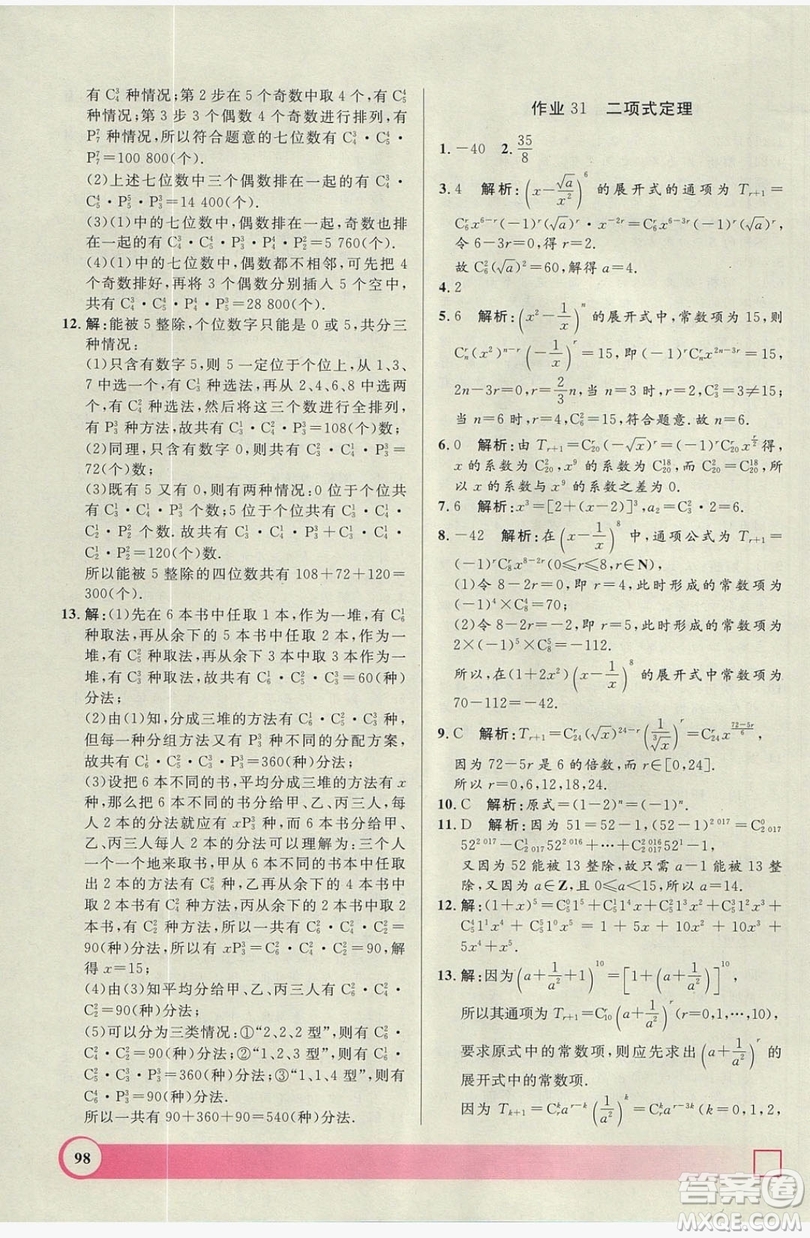 有 C₄³ 种情况;第 2 步在 5 个奇数中取 4 个,有 C₅⁴
种情况;第 3 步 3 个偶数 4 个奇数进行排列,有
P₇⁷ 种情况,所以符合题意的七位数有 C₄³・C₅⁴・
P₇⁷=100 800(个).
(2)上述七位数中三个偶数排在一起的有 C₄³・
C₅⁴・P₅⁵・P₃³=14 400(个).
(3)(1)中的七位数中,偶数排在一起,奇数也排
在一起的有 C₄³・C₅⁴・P₃³・P₄⁴・P₂²=5 760(个).
(4)(1)中的七位数,偶数都不相邻,可先把 4
个奇数排好,再将 3 个偶数分别插入 5 个空中,
共有 C₄³・C₅⁴・P₄⁴・P₅³=28 800(个).
12. 解:能被 5 整除,个位数字只能是 0 或 5,共分三
种情况:
(1)只含有数字 5,则只能在个位上,从 1、3、
7 中选一个,有 C₃¹ 种选法,再从 2、4、6、8 中选两
个,有 C₄² 种选法,然后将这三个数进行全排列,
有 P₃³ 种方法,故共有 C₃¹・C₄²・P₃³=108(个)数;
(2)同理,只含有数字 0 的有 C₃²・C₄¹・P₃³=
72(个)数;
(3)既有 5 又有 0,则有两种情况:0 在个位共
有 C₃¹・C₄¹・P₃³ 个数,5 在个位共有 C₃¹・C₄¹・
C₂¹・P₂² 个数. 故共有 C₃¹・C₄¹・P₃³+C₃¹・C₄¹・
C₂¹・P₂²=120(个)数;
所以能被 5 整除的四位数共有 108+72+120=
300(个).
13. 解:(1)先在 6 本书中任取 1 本,作为一堆,有 C₆¹
种取法,再从余下的 5 本书中任取 2 本,作为一
堆,有 C₅² 种取法,最后余下 3 本书作为一堆,有
C₃³ 种取法,故共有 C₆¹・C₅²・C₃³=60(种)
分法;
(2)由(1)知,分成三堆的方法有 C₆¹・C₅²・C₃³ 种,
但每一种分组方法又有 P₃³ 种不同的分配方案,
故共有 C₆¹・C₅²・C₃³・P₃³=360(种)分法;
(3)设把 6 本不同的书,平均分成三堆的方法有 x
种,那么把 6 本不同的书分给甲、乙、丙三人,每
人 2 本的分法就应有 xP₃³ 种. 而把 6 本不同的书分
给甲、乙、丙三人每人 2 本的分法可以理解为:三个
人一个一个地来取书,甲从 6 个不同的书本中任取
出 2 本的方法有 C₆² 种,甲不论用哪种方法取得 2
本书后,乙再从余下的 4 本书中取书有 C₄² 种方
法,而甲、乙不论用哪一种方法各取 2 本书后,丙
从余下的两本中取两本书,有 C₂² 种方法,所以
把 6 本不同的书分给甲、乙、丙三人有 C₆²・C₄²・
C₂²=90(种)分法,所以有 xP₃³=C₆²・C₄²・C₂²,解
得 x=15;
(4)由(3)知平均分给甲、乙、丙三人有 C₆²・C₄²・
C₂²=90(种)分法;
(5)可以分为三类情况:①“2、2、2 型”,则有 C₆²・C₄²・
C₂²=90(种)分法;②“1、2、3 型”,则有 C₆¹・C₅²・
C₃³・P₃³=360(种)分法;③“1、1、4 型”,则有 C₆⁴・
P₃³=90(种)分法.
所以一共有 90+360+90=540(种)分法.
作业 31 二项式定理
1. −40 2. 35/8
3. 4 解析:(x−√a/x²)⁶ 的展开式的通项为 Tᵣ₊₁=
C₆ʳx⁶⁻ʳ(−1)ʳ(√a)ʳ・x⁻²ʳ=C₆ʳx⁶⁻³ʳ(−1)ʳ(√a)ʳ.
令 6−3r=0,得 r=2.
故 C₆²(√a)²=60,解得 a=4.
4. 2
5. 6 解析:(x²−1/x)ⁿ 的展开式中,常数项为 15,则
Cₙʳ(x²)ⁿ⁻ʳ(−1/x)ʳ=15,即 Cₙʳ(−1)ʳx²ⁿ⁻³ʳ=15,
2n−3r=0,r=2/3 n,当 n=3 时,r=2,C₃²=3≠15;
当 n=6 时,r=4,C₆⁴=15,符合题意. 故 n=6.
6. 0 解析:由 Tᵣ₊₁=C₂₀ʳ(−√x)ʳ=(−1)ʳC₂₀ʳx^(r/2)
得,x 的系数为 C₂₀²,x⁹ 的系数为 C₂₀¹⁸,而 C₂₀¹⁸=C₂₀²,
所以 x 的系数与 x⁹ 的系数之差为 0.
7. 6 解析:x³=[2+(x−2)]³,a₂=C₃²・2=6.
8. −42 解析:在(x−1/x)⁸ 中,通项公式为 Tᵣ₊₁=
(−1)ʳC₈ʳx⁸⁻²ʳ(0≤r≤8,r∈N);
(1)令 8−2r=0,即 r=4,此时形成的常数项为
(−1)⁴×C₈⁴=70;
(2)令 8−2r=−2,即 r=5,此时形成的常数项为
2×(−1)⁵×C₈⁵=−112.
所以,在(1+2x²)(x−1/x)⁸ 的展开式中常数项为
70−112=−42.
9. C 解析:Tᵣ₊₁=C₂₄ʳ(√x)²⁴⁻ʳ(1/∛x)ʳ=C₂₄ʳx^((72−5r)/6)
因为 72−5r 是 6 的倍数,而 r∈[0,24].
所以 r=0,6,12,18,24.
10. C 解析:原式=(1−2)ⁿ=(−1)ⁿ.
11. D 解析:因为 51=52−1,(52−1)²⁰¹⁷=C₂₀₁₇⁰
52²⁰¹⁷−C₂₀₁₇¹52²⁰¹⁶+⋯+C₂₀₁₇²⁰¹⁶52¹−1,
又因为 52 能被 13 整除,故只需 a−1 能被 13 整
除,又因为 a∈Z,且 0≤a≤13,所以 a=1.
12. 解:(1+x)⁵=C₅⁵1⁰x⁵+C₅⁴1¹x⁴+C₅³1²x³+
C₅²1³x²+C₅¹1⁴x+C₅⁰1⁵x⁰=1+5x+10x²+10x³+
5x⁴+x⁵.
13. 解:因为(a+1/a²+1)¹⁰=[1+(a+1/a²)]¹⁰,
所以其通项为 Tᵣ₊₁=C₁₀ʳ(a+1/a²)ʳ(r=0,1,⋯,10),
要求原式中的常数项,则应先求(a+1/a²)ʳ 的
展开式中的常数项.
因为 Tₖ₊₁=Cᵣᵏaʳ⁻ᵏ(1/a²)ᵏ=Cᵣᵏaʳ⁻³ᵏ(k=0,1,2,
98
答案圈
MXQE.COM